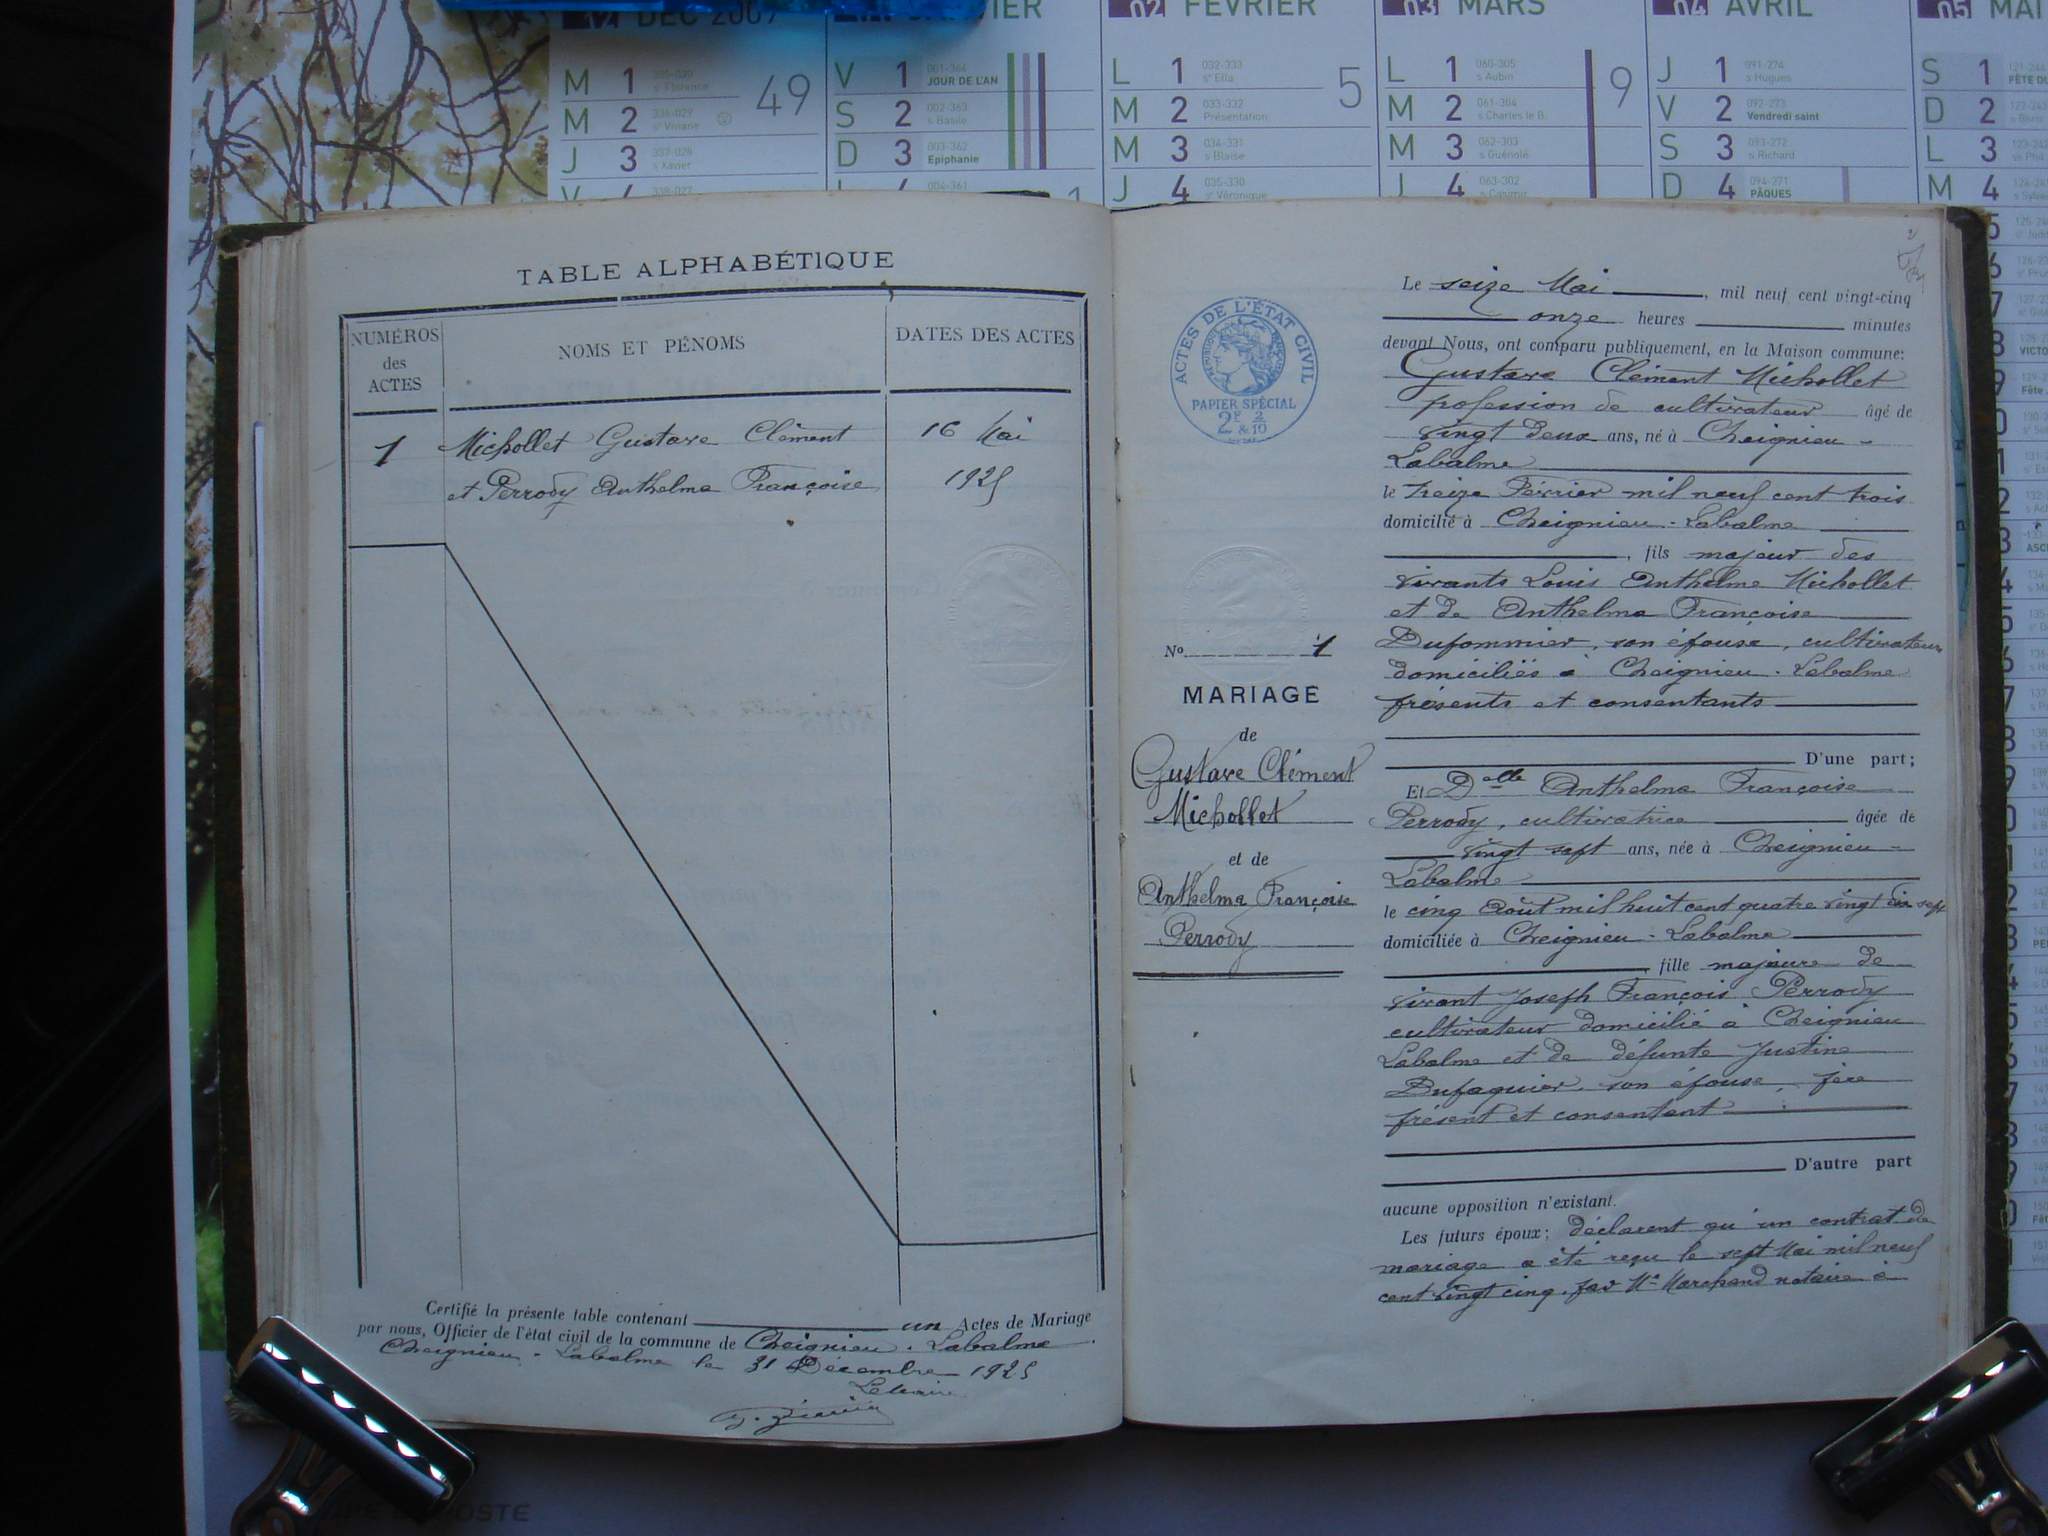 DEC 2009
IER
02 FÉVRIER
03 MARS
04 AVRIL
05 MAI
M 1 49
M 2
J 3
V 1 001-364 JOUR DE L'AN
S 2 002-363 s Basile
D 3 003-362 Epiphanie
004-361
L 1 032-333 sᵗᵉ Ella 5
M 2 033-332 Présentation
M 3 034-331 s Blaise
J 4 035-330 sᵗᵉ Véronique
L 1 060-305 s Aubin 9
M 2 061-304 s Charles le B.
M 3 062-303 s Guénolé
J 4 063-302 s Casimir
J 1 091-274 s Hugues
V 2 092-273 Vendredi saint
S 3 093-272 s Richard
D 4 094-271 PÂQUES
S 1
D 2
L 3
M 4
TABLE ALPHABÉTIQUE
NUMÉROS des ACTES
NOMS ET PÉNOMS
DATES DES ACTES
1 Michollet Gustave Clément 16 Mai
et Perrody Anthelma Françoise 1925
Certifié la présente table contenant un Actes de Mariage
par nous, Officier de l'état civil de la commune de Cheignieu-Labalme.
Cheignieu-Labalme le 31 Décembre 1925
Le Maire
ACTES DE L'ÉTAT CIVIL
RÉPUBLIQUE
PAPIER SPÉCIAL
2F 2/10
Nº 1
MARIAGE
de
Gustave Clément
Michollet
et de
Anthelma Françoise
Perrody
Le seize Mai, mil neuf cent vingt-cinq
onze heures minutes
devant Nous, ont comparu publiquement, en la Maison commune:
Gustave Clément Michollet
profession de cultivateur âgé de
vingt deux ans, né à Cheignieu-
Labalme
le treize Février mil neuf cent trois
domicilié à Cheignieu-Labalme
, fils majeur des
vivants Louis Anthelme Michollet
et de Anthelma Françoise
Dufommier, son épouse, cultivateurs
domiciliés à Cheignieu-Labalme
présents et consentants
D'une part;
Et Delle Anthelma Françoise
Perrody, cultivatrice âgée de
vingt sept ans, née à Cheignieu-
Labalme
le cinq Août mil huit cent quatre vingt dix sept
domiciliée à Cheignieu-Labalme
, fille majeure de
vivant Joseph François Perrody
cultivateur domicilié à Cheignieu
Labalme et de défunte Justine
son épouse, père
présent et consentant
D'autre part
aucune opposition n'existant.
Les futurs époux; déclarent qu'un contrat de
mariage a été reçu le sept Mai mil neuf
cent vingt cinq, par Me Marchand notaire à